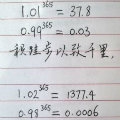 1.01³⁶⁵ = 37.8
0.99³⁶⁵ = 0.03
积跬步以致千里，
1.02³⁶⁵ = 1377.4
0.98³⁶⁵ = 0.0006